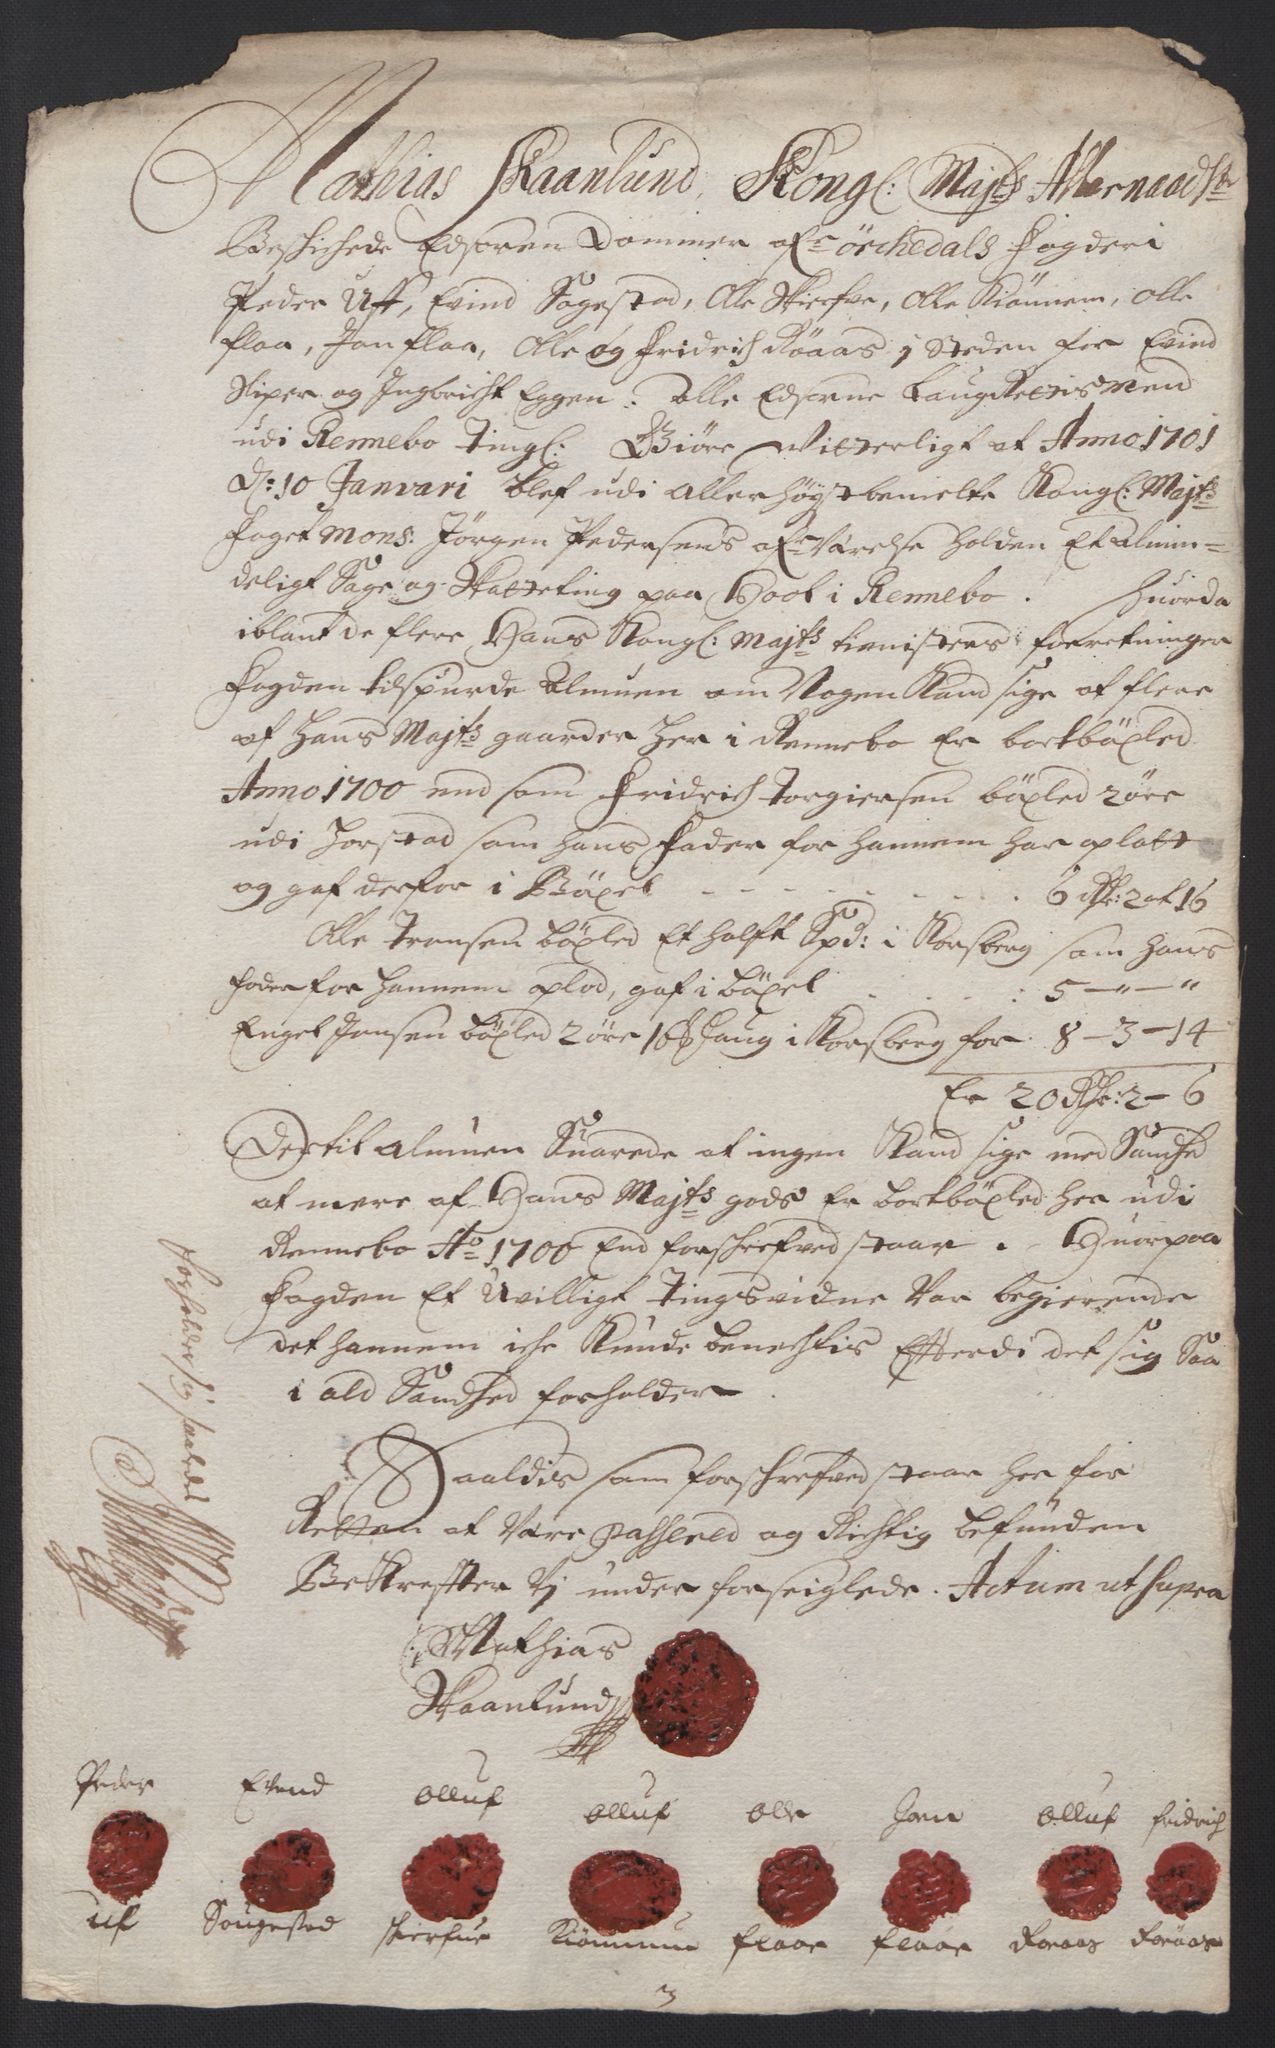 Mathias Skaanlund Kongl: Majts Allernaadste
Beschichede Edsoren Dommer ofr Örchedals Fogderi
Peder Uff, Evind Sogestad, Olle Skierfve, Olle Kiönnem, Olle
flaa, Jon flaa, Olle og Fridrich Röaas j steden for Evind
og Ingbricht Eggen. alle Edsorne LaugRettismend
udi Rennebo Tingl: Giöre Witterligt at Anno 1701
d: 10 Janvari blef udi aller höystbemelte Kongl: Majts
foget Mons: Jörgen Pedersens ofr Värelse holden Et almin=
deligt Sage og Skatteting paa Hool i Rennebo. Huorda
iblant de flere Hans Kongl: Majts tienistens forretninger
Fogden tilspurde Almuen om Nogen Kand sige at flere
af Hans Majts gaarder her i Rennebo Er bortböxled
Anno 1700 end som Fridrich Torgiersen böxled 2 öre
udi Horstad som hans Fader for hannem har oplatt
og gaf derfor i Böxel - - - - - - - 6 Rdr: 2 ort 16
Olle Tronsen böxled Et halft Spd: i Korsberg som hans
fader for hannem oplod, gaf i böxel . . . . : 5 - " - "
Engel Jonsen böxled 2 öre 16 Haug i Korsberg for 8 - 3 - 14
Er 20 Rdr: 2 - 6
Dertil almuen Suarede at ingen Kand sige med Sandhed
at mere af Hans Majts gods Er bortböxled her udi
Rennebo Ao 1700 End forschrefved staar. Huorpaa
Fogden Et Uvilligt Tingsvidne Var begierende
det hannem iche Kunde benechtis Efterdi det sig Saa
i ald Sandhed forholder.
Saaldis som forschrefved staar her for
Retten at Være passered og Richtig befunden
Bekreffter Vj under forseiglede. Actum ut supra
Mathias
Skaanlund
Peder Evend Olluf Olluf Olle Joen Olluf fridrich
uf Sougestad skierfue Kiömmum flaae flaae Roraas Roraas
3
forholder sig saaledes